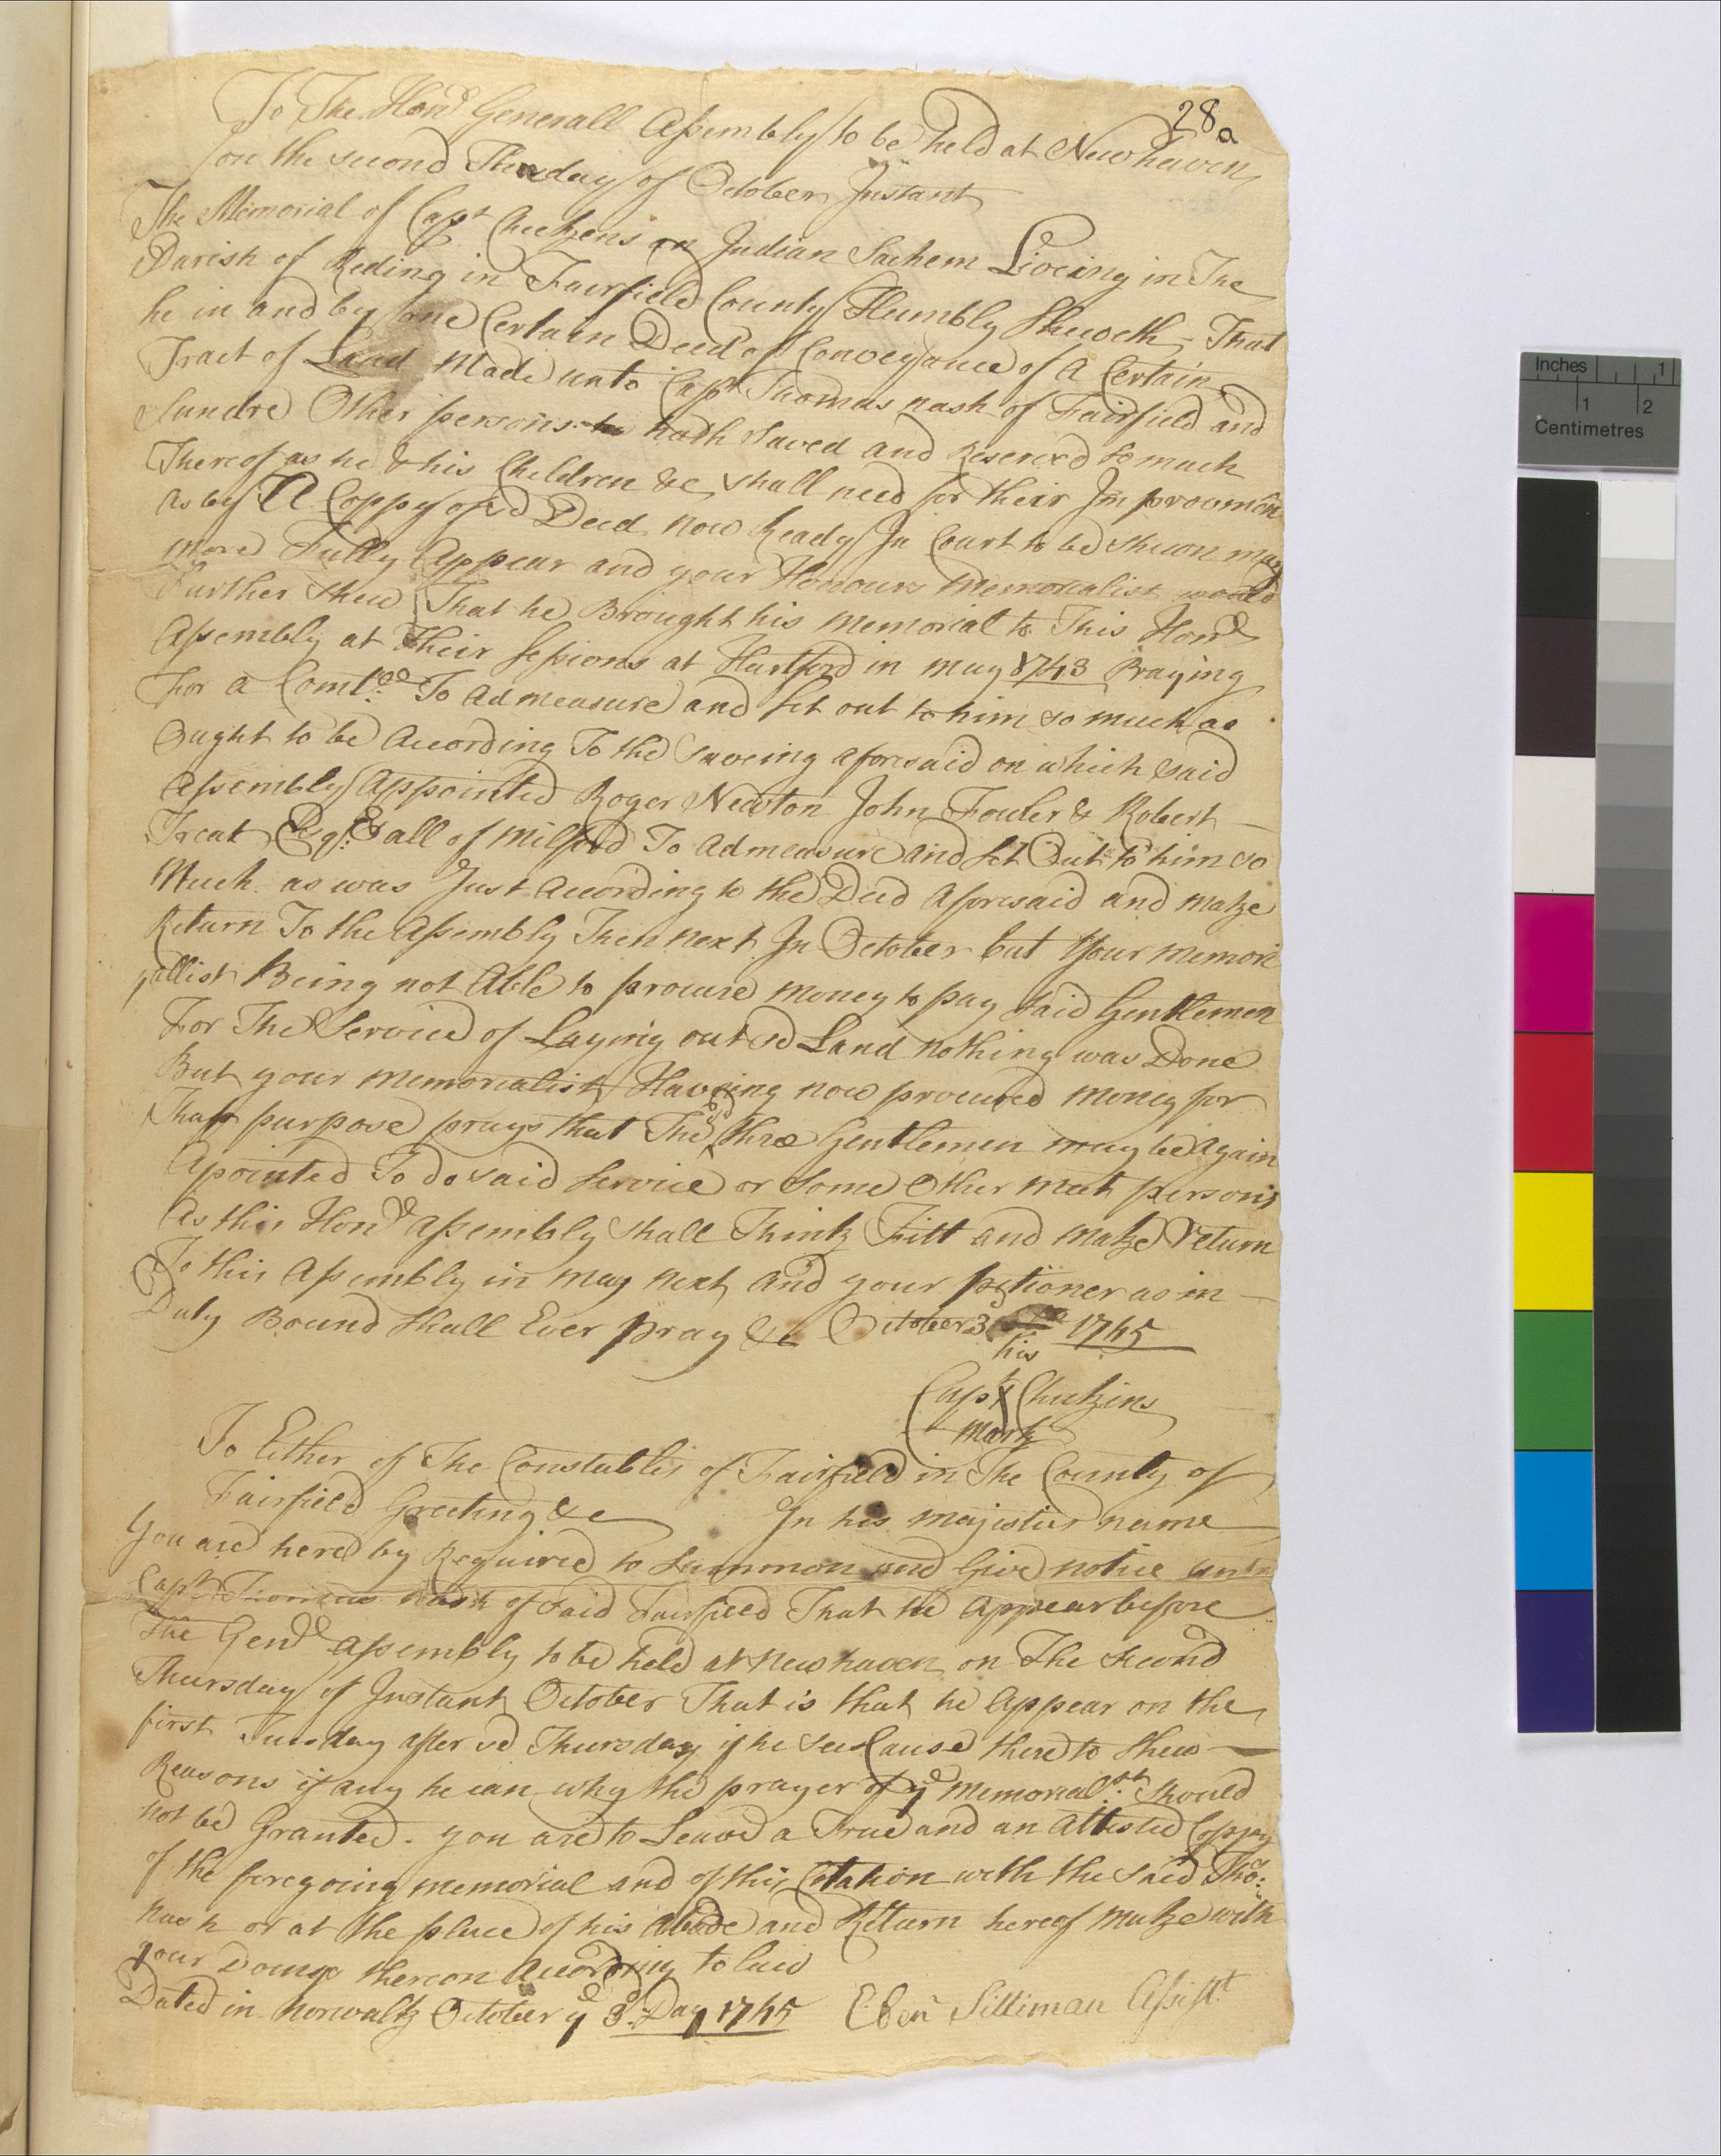 28a
To The Hond Generall Assembly to be held at Newhaven
on the second Thursday of October Instant
The Memorial of Capt Cheekens an Indian Sachem Liveing in The
Parish of Reding in Fairfield County Humbly Sheweth, That
he in and by one Certain Deed of Conveyance of A Certain
Tract of Land Made unto Capt Thomas nash of Fairfield and
Sundre Other persons hath Saved and Reserved so much
Thereof as he & his Children &c shall need for their Improvmen
As by A Coppy of sd Deed now Ready In Court to be shewn may
more Fully Appear and your Honours Memorialist would
Further shew That he Brought his memorial to This Hond
Assembly at Their Sessions at Hartford in may 1743 Praying
For a Comtee To Admeasure and set out to him so much as
Ought to be According To the Saveing aforesaid on which said
Assembly Appointed Roger Newton John Fowler & Robert
Treat Esqrs all of Milford To Admeasure and set Out to him so
Much as was Just According to the Deed Aforesaid and make
Return To the Assembly Then next In October but your memori
allist Being not Able to procure money to pay said Gentlemen
For The Service of Laying out sd Land nothing was Done
But your memorialist Having now procured money for
That purpose prays that The sd three Gentlemen may be Again
Apointed To do said Service or Some Other meet persons
As this Hond Assembly shall Think Fitt and make Return
To this Assembly in may next and your petioner as in
Duty Bound shall Ever pray &c October 3 1745
his
Capt X Cheekins
mark
To Either of The Constables of Fairfield in The County of
Fairfield Greeting &c In his majesties name
You are hereby Required to Summon and Give notice unto
Capt Thomas Nash of said Fairfield That he Appear before
The Genll Assembly to be held at Newhaven on The Second
Thursday of Instant October That is that he Appear on the
first Tuesday after sd Thursday if he see Cause there to shew
Reasons if any he can why the prayer of ye memorialst should
not be Granted. you are to Leave a True and an Attested Coppy
of the foregoing memorial and of this Citation with the said Thos:
Nash or at the place of his abode and Return hereof make with
your Doings thereon According to law
Dated in Norwalk October ye 3d Day 1745 Ebenr Silliman Assistt